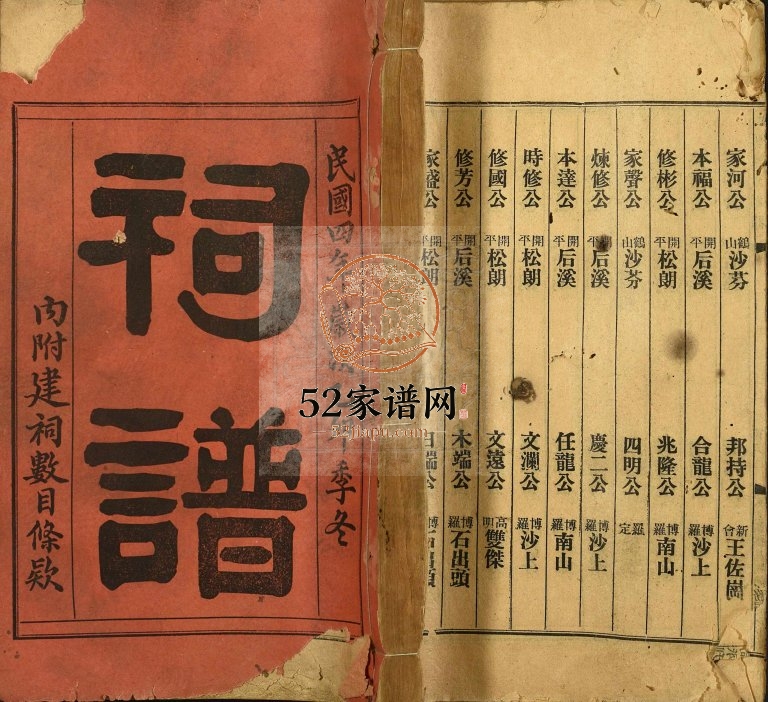 家河公 鶴山 沙芬 邦持公 新會 王佐崗
本福公 開平 后溪 合龍公 博羅 沙上
修彬公 開平 松朗 兆隆公 博羅 南山
家聲公 鶴山 沙芬 四明公 羅定
煉修公 開平 后溪 慶二公 博羅 沙上
本達公 開平 后溪 任龍公 博羅 南山
時修公 開平 松朗 文瀾公 博羅 沙上
修國公 開平 松朗 文遠公 高明 雙傑
修芳公 開平 后溪 木端公 博羅 石出頭
家盛公 開平 松朗
民國四年 季冬
祠譜
內附建祠數目條欵
52家谱网